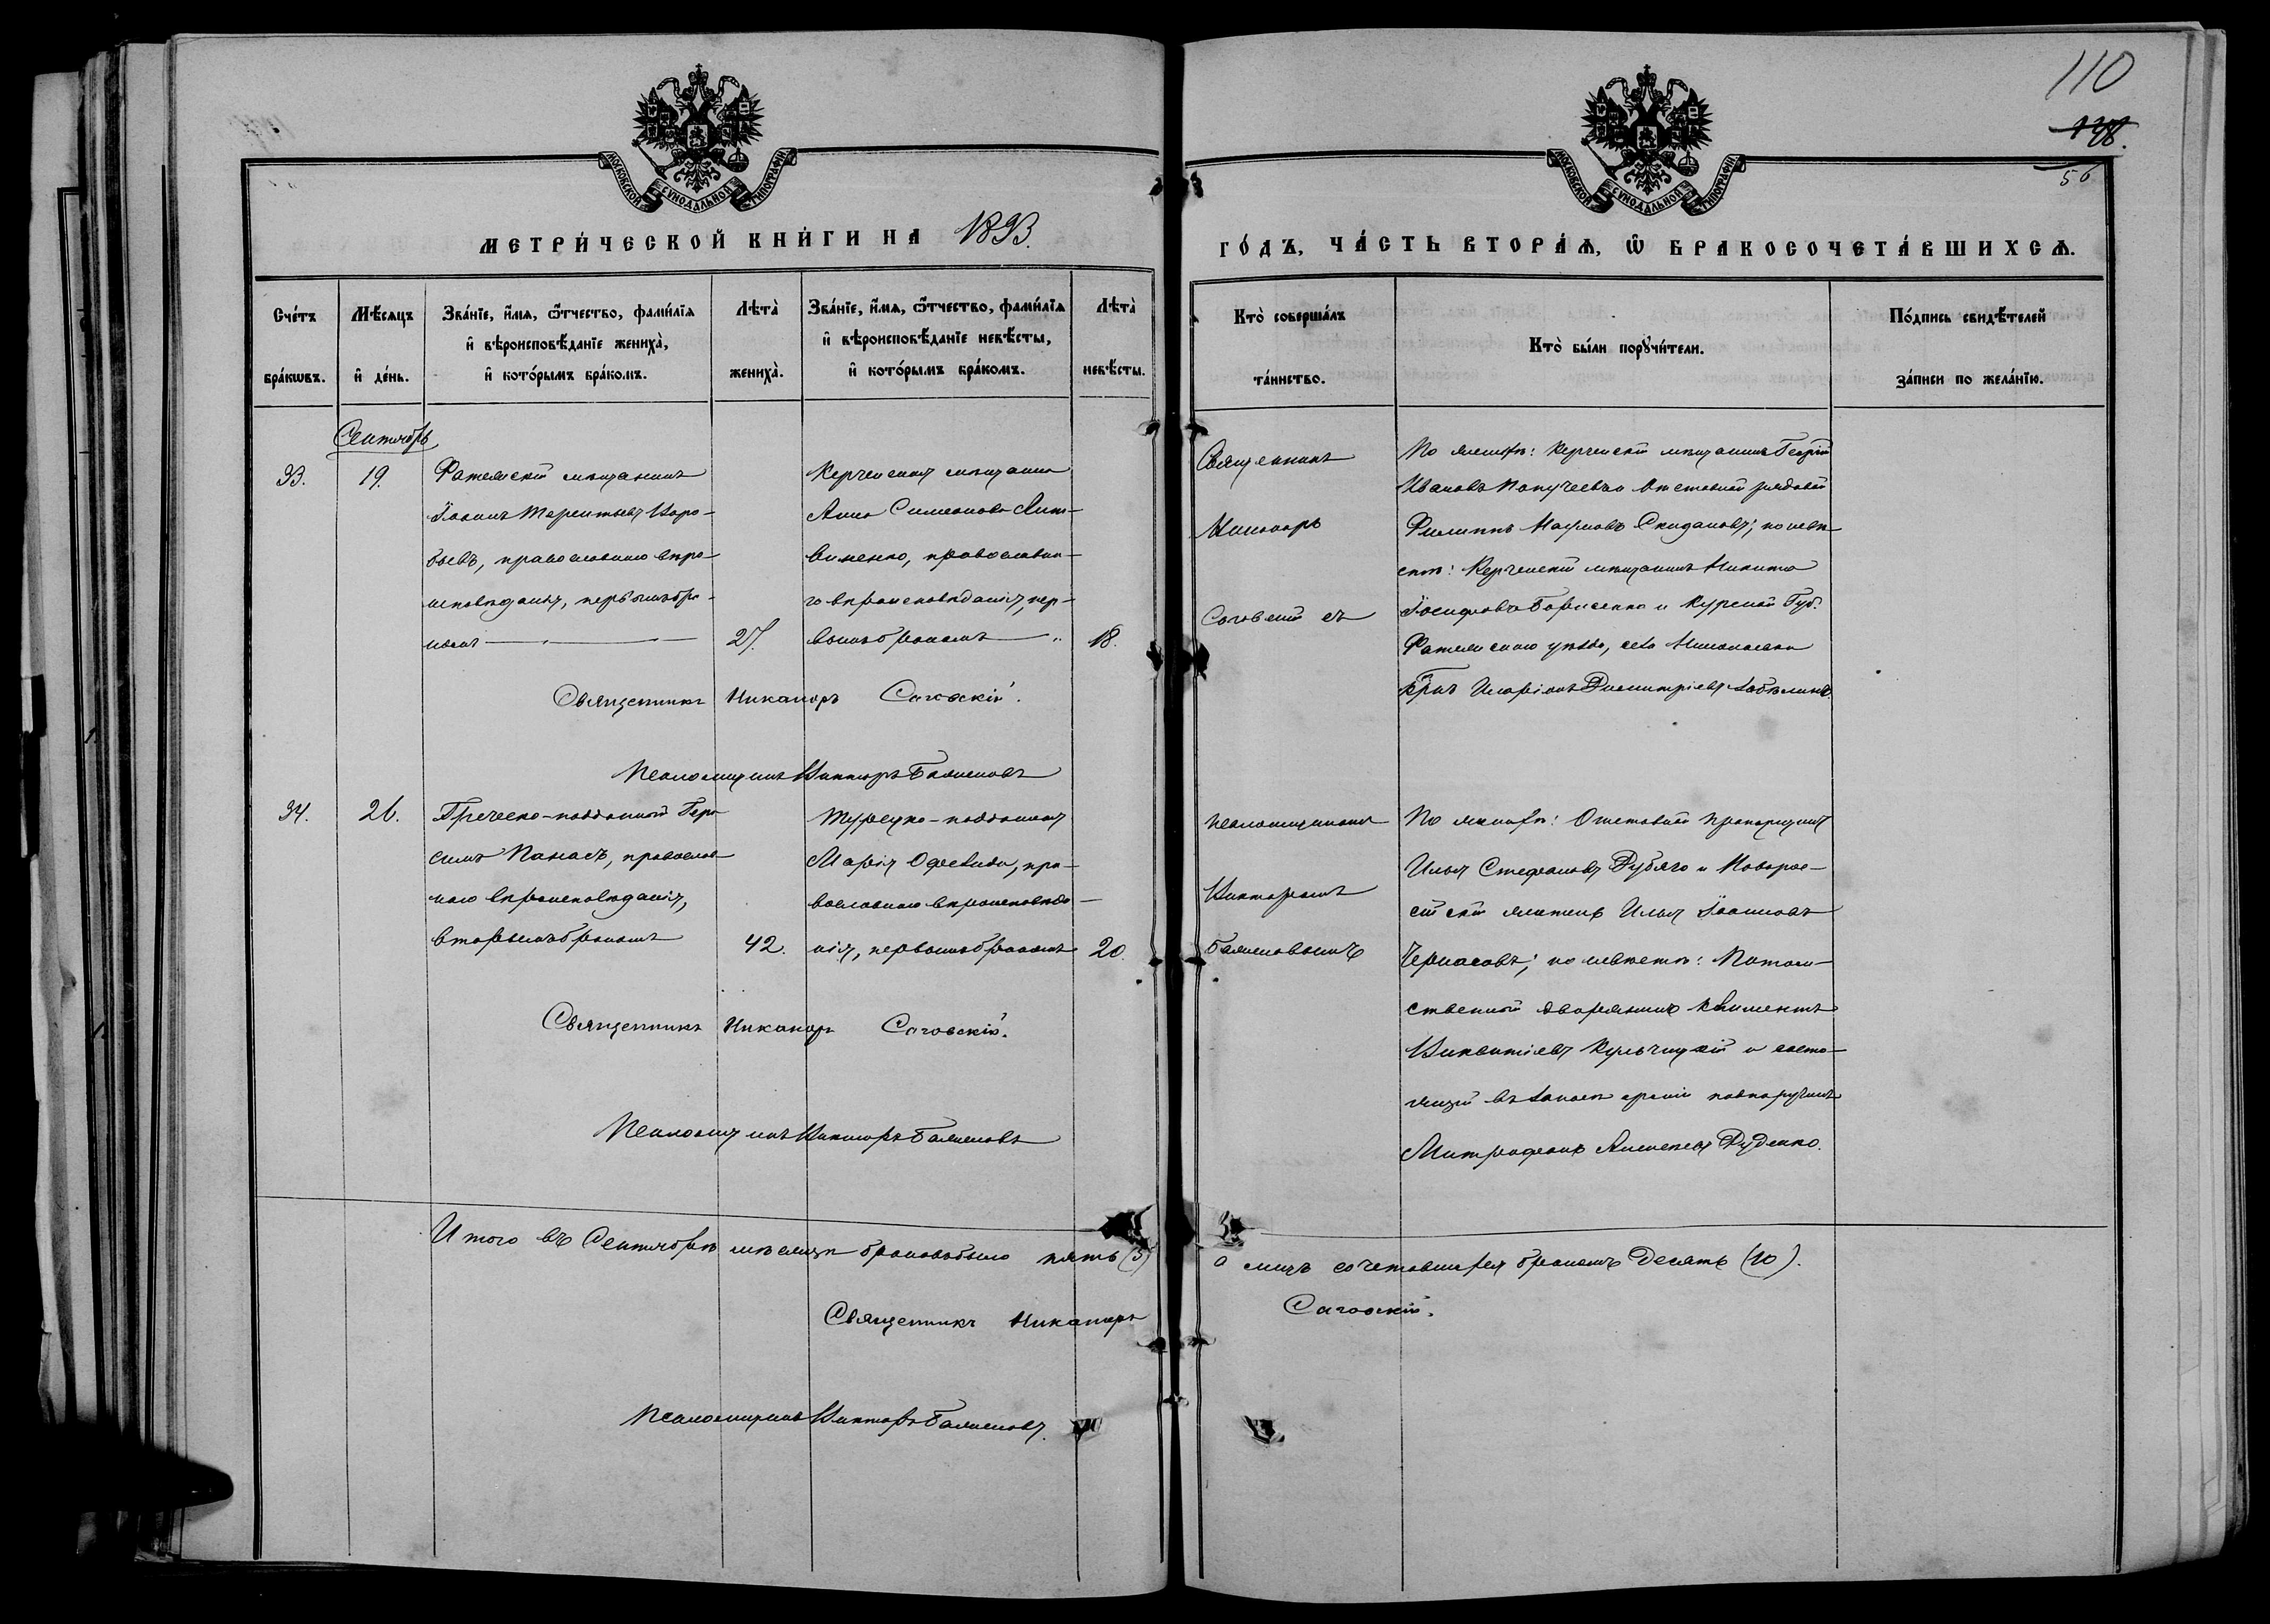 110
138.
56
МОСКОВСКОЙ СѴНОДАЛЬНОЙ ТИПОГРАФІИ
МОСКОВСКОЙ СѴНОДАЛЬНОЙ ТИПОГРАФІИ
МЕТРИ́ЧЕСКОЙ КНИ́ГИ НА 1893.
ГО́ДЪ, ЧА́СТЬ ВТОРА́Ѧ, Ѡ҆ БРАКОСОЧЕТА́ВШИХСѦ.
Сче́тъ
бра́кѡвъ.
Мѣ́сѧцъ
и҆ де́нь.
Зва́нїе, и҆́мѧ, ѻ҆́тчество, фами́лїѧ
и҆ вѣроисповѣ́данїе жениха̀,
и҆ кото́рымъ бра́комъ.
Лѣта̀
жениха̀.
Зва́нїе, и҆́мѧ, ѻ҆́тчество, фами́лїѧ
и҆ вѣроисповѣ́данїе невѣ́сты,
и҆ кото́рымъ бра́комъ.
Лѣта̀
невѣ́сты.
Кто̀ соверша́лъ
та́инство.
Кто̀ бы́ли порꙋчи́тели.
По́дпись свидѣ́телей
за́писи по жела́нїю.
Сентябрь
33.
19.
Фатежскій мѣщанинъ
Іоаннъ Терентьевъ Коро-
бьевъ, православнаго вѣро-
исповѣданія, первымъ бра-
комъ
27.
Керченская мѣщанка
Анна Симеонова Лит-
виненко, православна-
го вѣроисповѣданія, пер-
вымъ бракомъ
18.
Священникъ
Никаноръ
Саговскій съ
По женихѣ: Керченскій мѣщанинъ Георгій
Ивановъ и Отставной рядовой
Филиппъ Наумовъ Скидановъ; по невѣ-
стѣ: Керченскій мѣщанинъ Никита
Іосифовъ Борисенко и Курской Губ.
Фатежскаго уѣзда, села Николаевки
крнъ Иларіонъ Димитріевъ Забѣлинъ
Священникъ Никаноръ Саговскій.
Псаломщикъ Викторъ Баженовъ
34.
26.
Греческо-подданный Гера-
симъ Панасъ, православ-
наго вѣроисповѣданія,
вторымъ бракомъ
42.
Турецко-подданная
Марія, пра-
вославнаго вѣроисповѣда-
нія, первымъ бракомъ
20.
псаломщикомъ
Викторомъ
Баженовымъ
По женихѣ: Отставной прапорщикъ
Илья Стефановъ Дубяго и Новорос-
сійскій житель Илья Іоанновъ
Черкасовъ; по невѣстѣ: Потом-
ственный дворянинъ Климентъ
Викентіевъ Кульчицкій и состо-
ящій въ запасѣ арміи подпоручикъ
Митрофанъ Алексѣевъ Руденко.
Священникъ Никаноръ Саговскій.
Псаломщикъ Викторъ Баженовъ
Итого въ Сентябрѣ мѣсяцѣ браковъ было пять (5)
а лицъ сочетавшихся бракомъ десять (10).
Священникъ Никаноръ
Саговскій.
Псаломщикъ Викторъ Баженовъ.